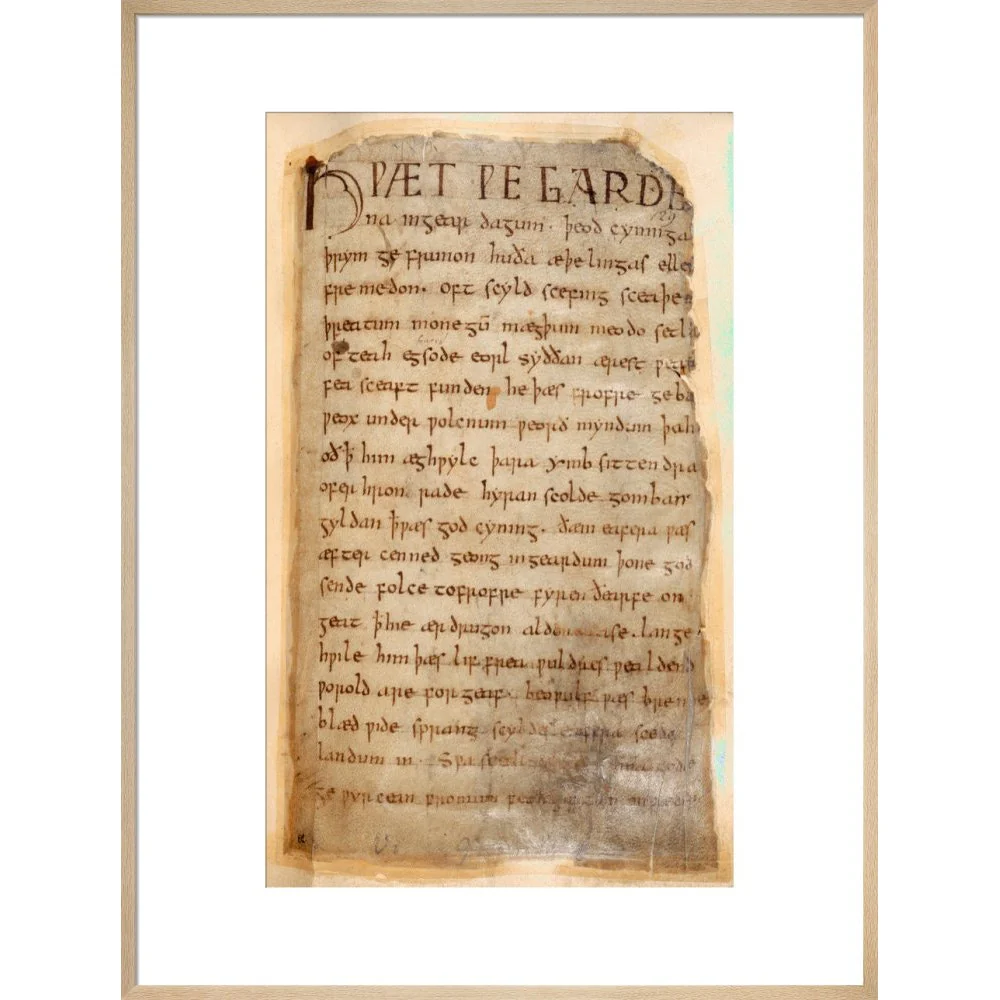 HǷÆT ǷE GARDE
na ingear dagum. þeod cyninga
þrym ge frunon huða æþelingas elle
fremedon. oft scyld scefing sceaþe
þreatum monegū mægþum meodo setla
of teah egsode eorl syððan ærest
fea sceaft funden he þæs frofre geba
ƿeox under ƿolcnum ƿeorð myndum þah
oðꝥ him æghƿylc þara ymb sittendra
ofer hron rade hyran scolde gomban
gyldan ꝥƿæs god cyning. ðæm eafera ƿæs
æfter cenned geong ingeardum þone god
sende folce tofrofre fyren ðearfe on
geat ꝥhie ær drugon lange
hƿile him þæs lif frea ƿuldres ƿealdend
ƿorold are forgeaf. beoƿulf ƿæs breme
blæd ƿide sprang scyldes eafera scede
landum in. Sƿa
ge ƿyrcean fromum